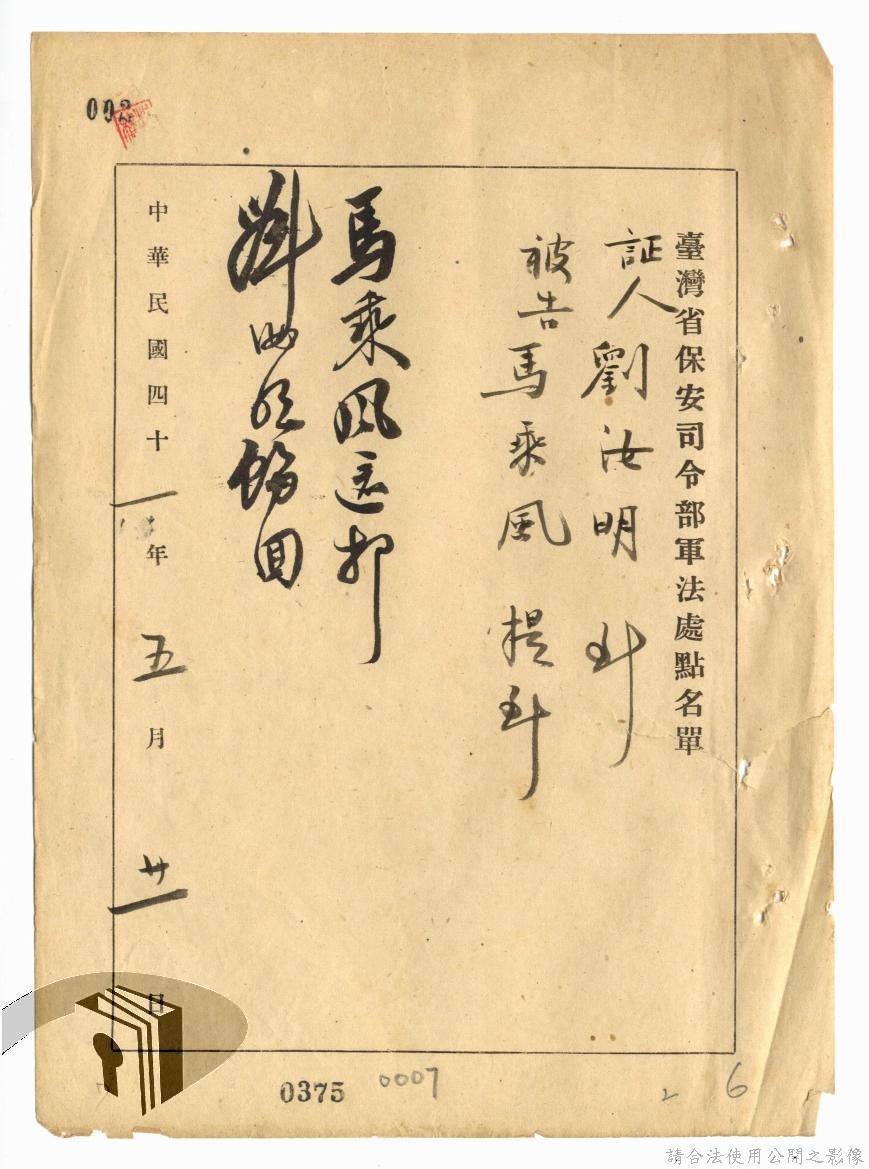 臺灣省保安司令部軍法處點名單
証人劉汝明 到
被告馬乘風 提到
馬乘風還押
劉汝明飭回
中華民國四十一年五月廿一日
0375
0007
2
6
請合法使用公開之影像